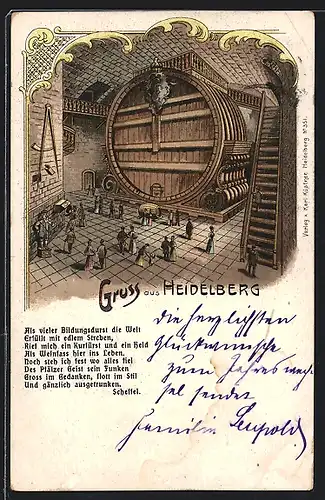 Gruss aus HEIDELBERG
Verlag v. Karl Küstner, Heidelberg Nº 351.
Als vieler Bildungsdurst die Welt
Erfüllt mit edlem Streben,
Rief mich ein Kurfürst und ein Held
Als Weinfass hier ins Leben.
Noch steh ich fest wo alles fiel
Des Pfälzer Geist sein Funken
Gross im Gedanken, flott im Stil
Und gänzlich ausgetrunken.
Scheffel.
die herzlichsten
Glückwünsche
zum Jahreswech
sel sendet
Familie Leupold